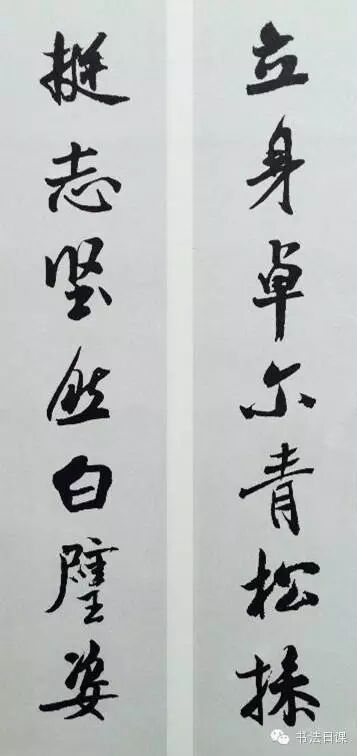 立身卓尔青松操
挺志坚然白璧姿
书法日课